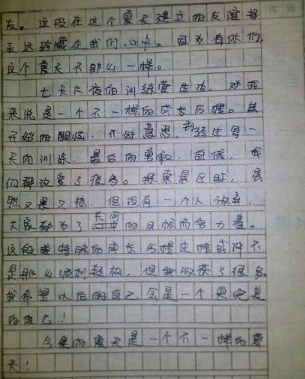 友。这段在这个夏天建立的友谊将
永远珍藏在我们心中。因为有你们,
这个夏天不那么一样。
七天六夜的训练营生活,对我
来说是一个不一样的成长历程。从
开始的胆怯,不好意思,到经过每一
天的训练,最后的勇敢,自信,我
们都改变了很多。探索展区时,虽
然又累又热,但没有一个人放弃,
大家都为了共同的目标而努力着。
这段特殊的成长历程或许不
是那么顺利,但我收获了很多。
我希望以后的自己会是一个更完美
的自己!
今年的夏天是一个不一样的夏
天!